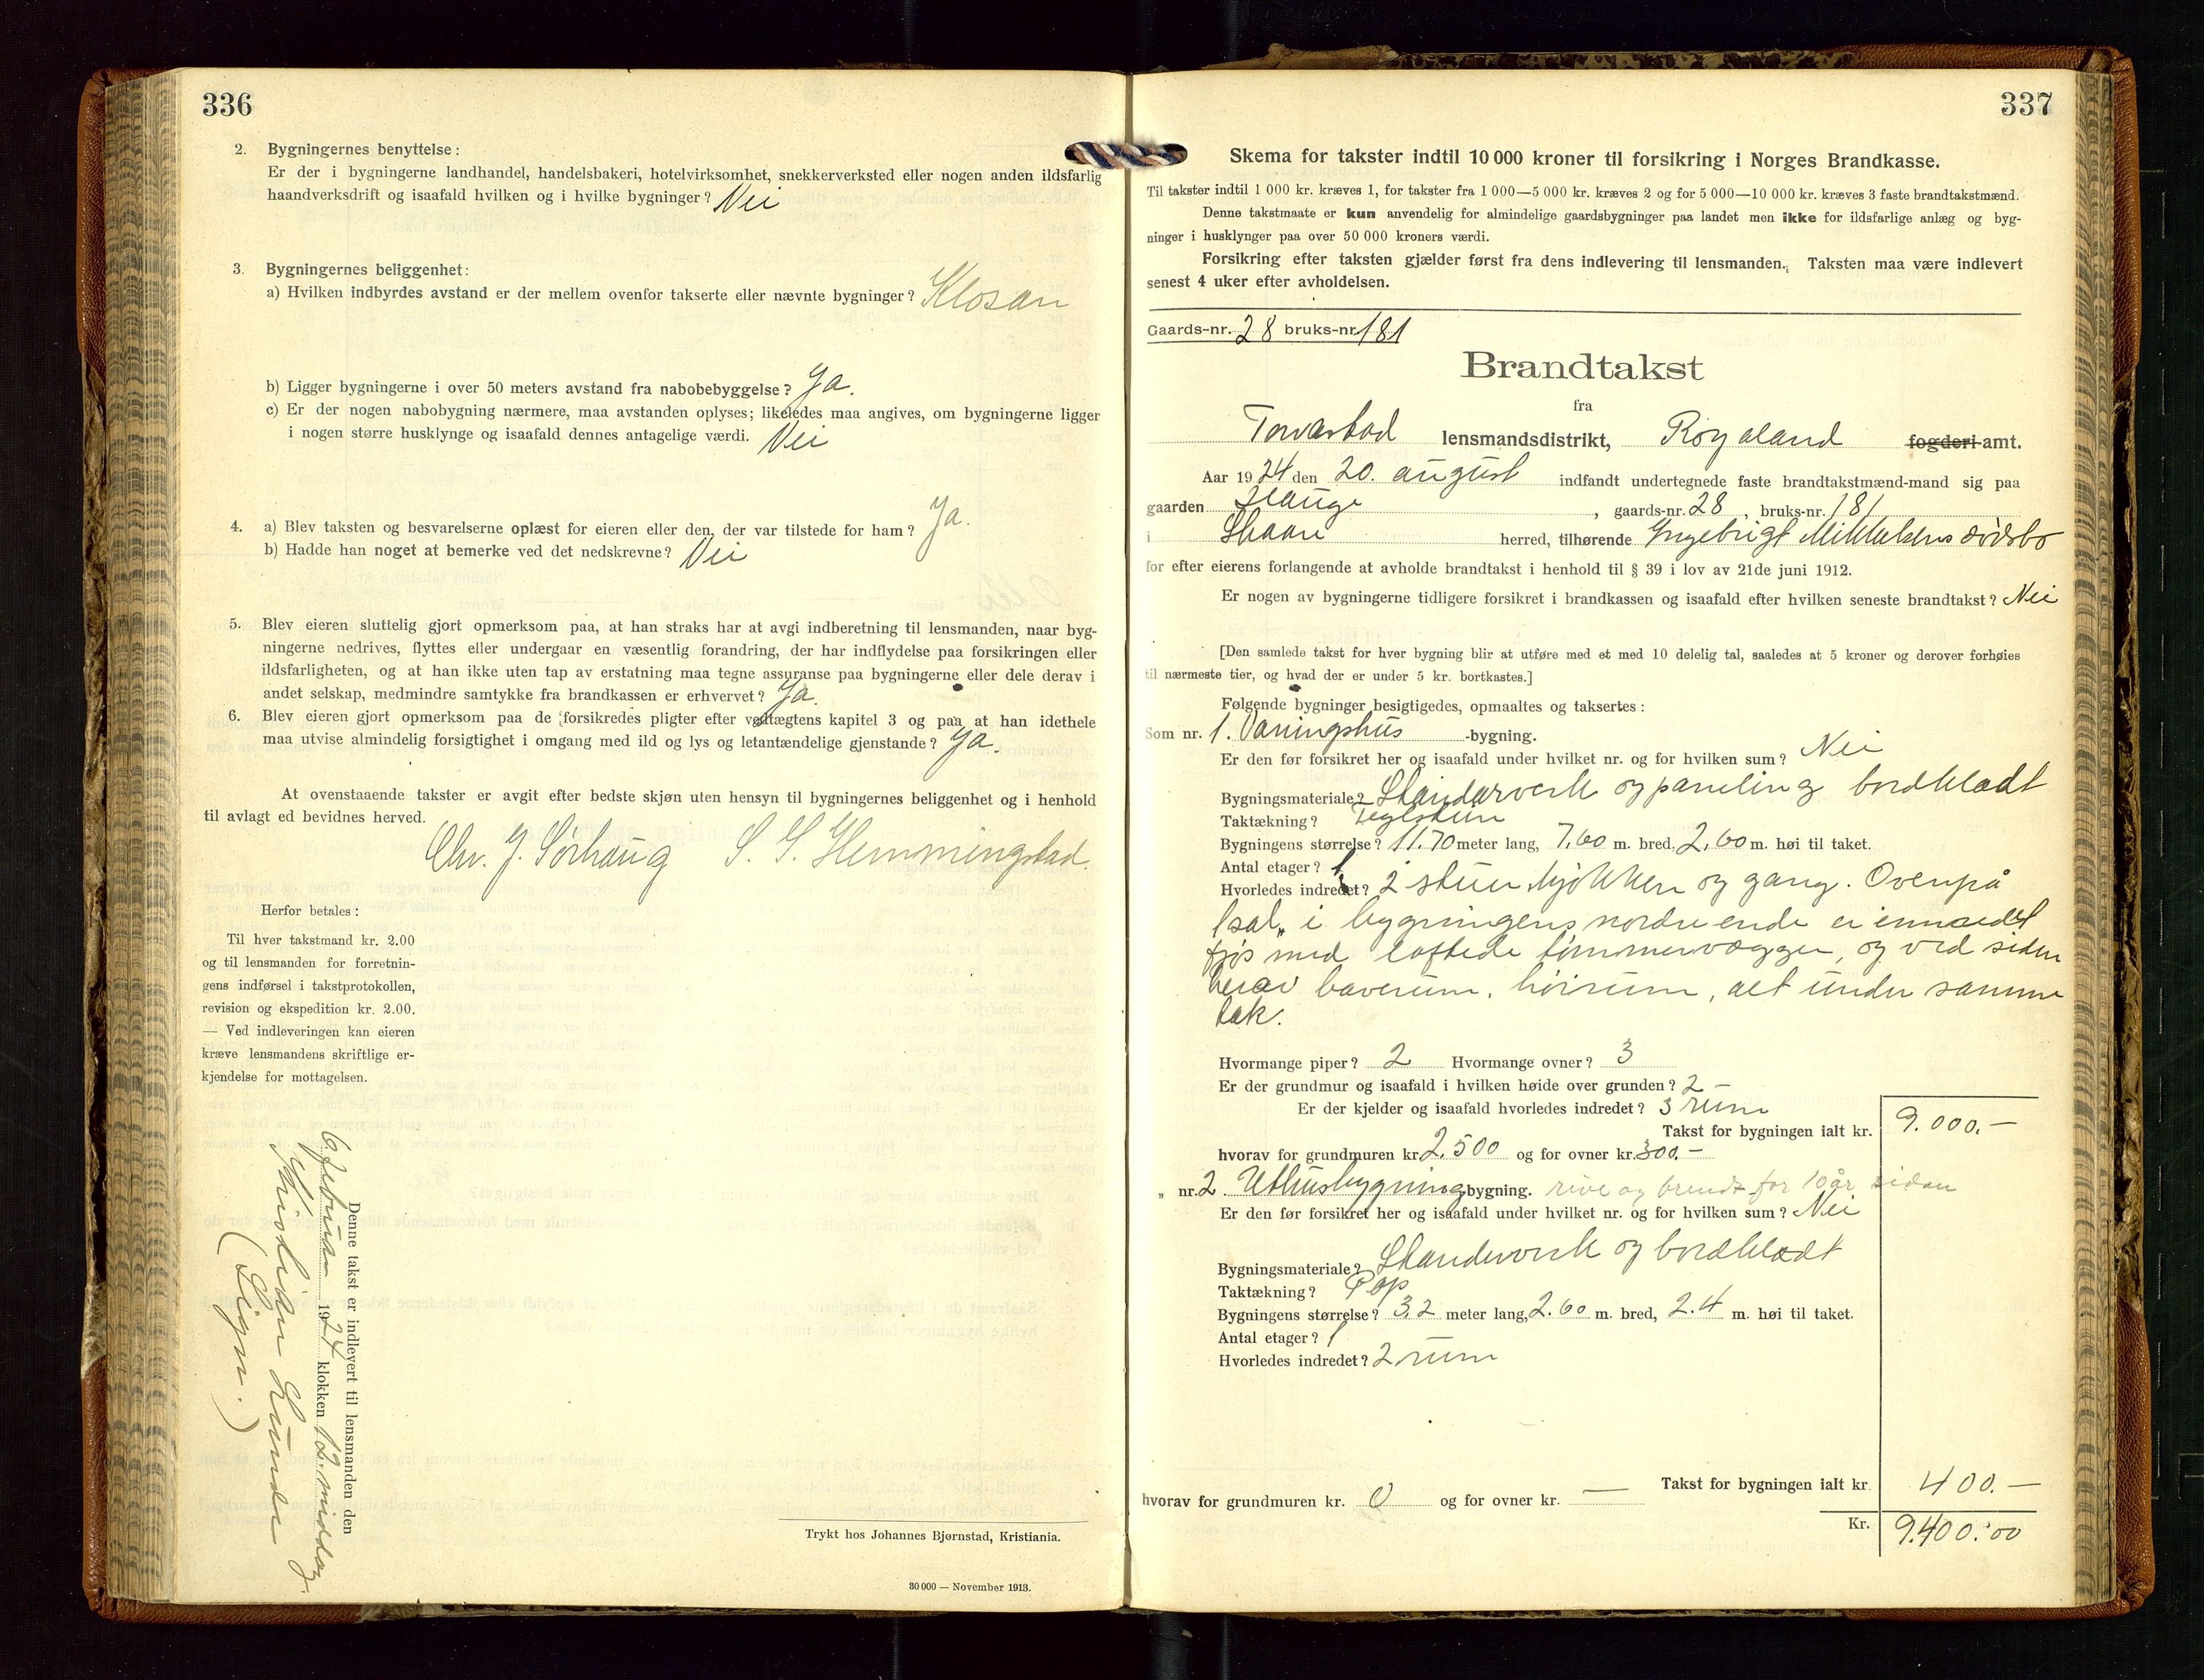 336
2. Bygningernes benyttelse:
Er der i bygningerne landhandel, handelsbakeri, hotelvirksomhet, snekkerverksted eller nogen anden ildsfarlig
haandverksdrift og isaafald hvilken og i hvilke bygninger? Nei
3. Bygningernes beliggenhet:
a) Hvilken indbyrdes avstand er der mellem ovenfor takserte eller nævnte bygninger? Klosan
b) Ligger bygningerne i over 50 meters avstand fra nabobebyggelse? Ja.
c) Er der nogen nabobygning nærmere, maa avstanden oplyses; likeledes maa angives, om bygningerne ligger
i nogen større husklynge og isaafald dennes antagelige værdi. Nei
4. a) Blev taksten og besvarelserne oplæst for eieren eller den, der var tilstede for ham? Ja.
b) Hadde han noget at bemerke ved det nedskrevne? Nei
5. Blev eieren sluttelig gjort opmerksom paa, at han straks har at avgi indberetning til lensmanden, naar byg-
ningerne nedrives, flyttes eller undergaar en væsentlig forandring, der har indflydelse paa forsikringen eller
ildsfarligheten, og at han ikke uten tap av erstatning maa tegne assuranse paa bygningerne eller dele derav i
andet selskap, medmindre samtykke fra brandkassen er erhvervet? Ja.
6. Blev eieren gjort opmerksom paa de forsikredes pligter efter vedtægtens kapitel 3 og paa at han idethele
maa utvise almindelig forsigtighet i omgang med ild og lys og letantændelige gjenstande? Ja.
At ovenstaaende takster er avgit efter bedste skjøn uten hensyn til bygningernes beliggenhet og i henhold
til avlagt ed bevidnes herved.
Chr. J. Sørhaug S. S. Hemmingstad.
Herfor betales:
Til hver takstmand kr. 2.00
og til lensmanden for forretnin-
gens indførsel i takstprotokollen,
revision og ekspedition kr. 2.00.
— Ved indleveringen kan eieren
kræve lensmandens skriftlige er-
kjendelse for mottagelsen.
Denne takst er indlevert til lensmanden den
6 februar 1924 klokken 12 middag.
Kristian Lunde
(Sign.)
Trykt hos Johannes Bjørnstad, Kristiania.
30 000 — November 1913.
337
Skema for takster indtil 10 000 kroner til forsikring i Norges Brandkasse.
Til takster indtil 1 000 kr. kræves 1, for takster fra 1 000—5 000 kr. kræves 2 og for 5 000—10 000 kr. kræves 3 faste brandtakstmænd.
Denne takstmaate er kun anvendelig for almindelige gaardsbygninger paa landet men ikke for ildsfarlige anlæg og byg-
ninger i husklynger paa over 50 000 kroners værdi.
Forsikring efter taksten gjælder først fra dens indlevering til lensmanden. Taksten maa være indlevert
senest 4 uker efter avholdelsen.
Gaards-nr. 28 bruks-nr. 181
Brandtakst
fra
Torvastad lensmandsdistrikt, Rogaland fogderi amt.
Aar 1924 den 20. august indfandt undertegnede faste brandtakstmænd-mand sig paa
gaarden Hauge, gaards-nr. 28, bruks-nr. 181
i Skaare herred, tilhørende Ingebrigt Mikkelsens dødsbo
for efter eierens forlangende at avholde brandtakst i henhold til § 39 i lov av 21de juni 1912.
Er nogen av bygningerne tidligere forsikret i brandkassen og isaafald efter hvilken seneste brandtakst? Nei
[Den samlede takst for hver bygning blir at utføre med et med 10 delelig tal, saaledes at 5 kroner og derover forhøies
til nærmeste tier, og hvad der er under 5 kr. bortkastes.]
Følgende bygninger besigtigedes, opmaaltes og taksertes:
Som nr. 1. Vaningshus -bygning.
Er den før forsikret her og isaafald under hvilket nr. og for hvilken sum? Nei
Bygningsmateriale? Standarverk og paneling bordklædt
Taktækning? Teglsten
Bygningens størrelse? 11.70 meter lang, 7.60 m. bred, 2.60 m. høi til taket.
Antal etager? 1
Hvorledes indredet? 2 stuer kjøkken og gang. Ovenpå
1 sal, i bygningens nordre ende er innredet
fjøs med laftede tømmervægger, og ved siden
herav baverum, høirum, alt under samme
tak.
Hvormange piper? 2 Hvormange ovner? 3
Er der grundmur og isaafald i hvilken høide over grunden? 2 —
Er der kjelder og isaafald hvorledes indredet? 3 rum
Takst for bygningen ialt kr. 9.000.—
hvorav for grundmuren kr. 2.500 og for ovner kr. 300.—
„ nr. 2 Uthusbygning bygning. rive og brendt for 10 år sidan
Er den før forsikret her og isaafald under hvilket nr. og for hvilken sum? Nei
Bygningsmateriale? Standerverk og bordklædt
Taktækning? Pap
Bygningens størrelse? 3.2 meter lang, 2.60 m. bred, 2.4 m. høi til taket.
Antal etager? 1
Hvorledes indredet? 2 rum
Takst for bygningen ialt kr. 400.—
hvorav for grundmuren kr. 0 og for ovner kr. —
Kr. 9.400.00